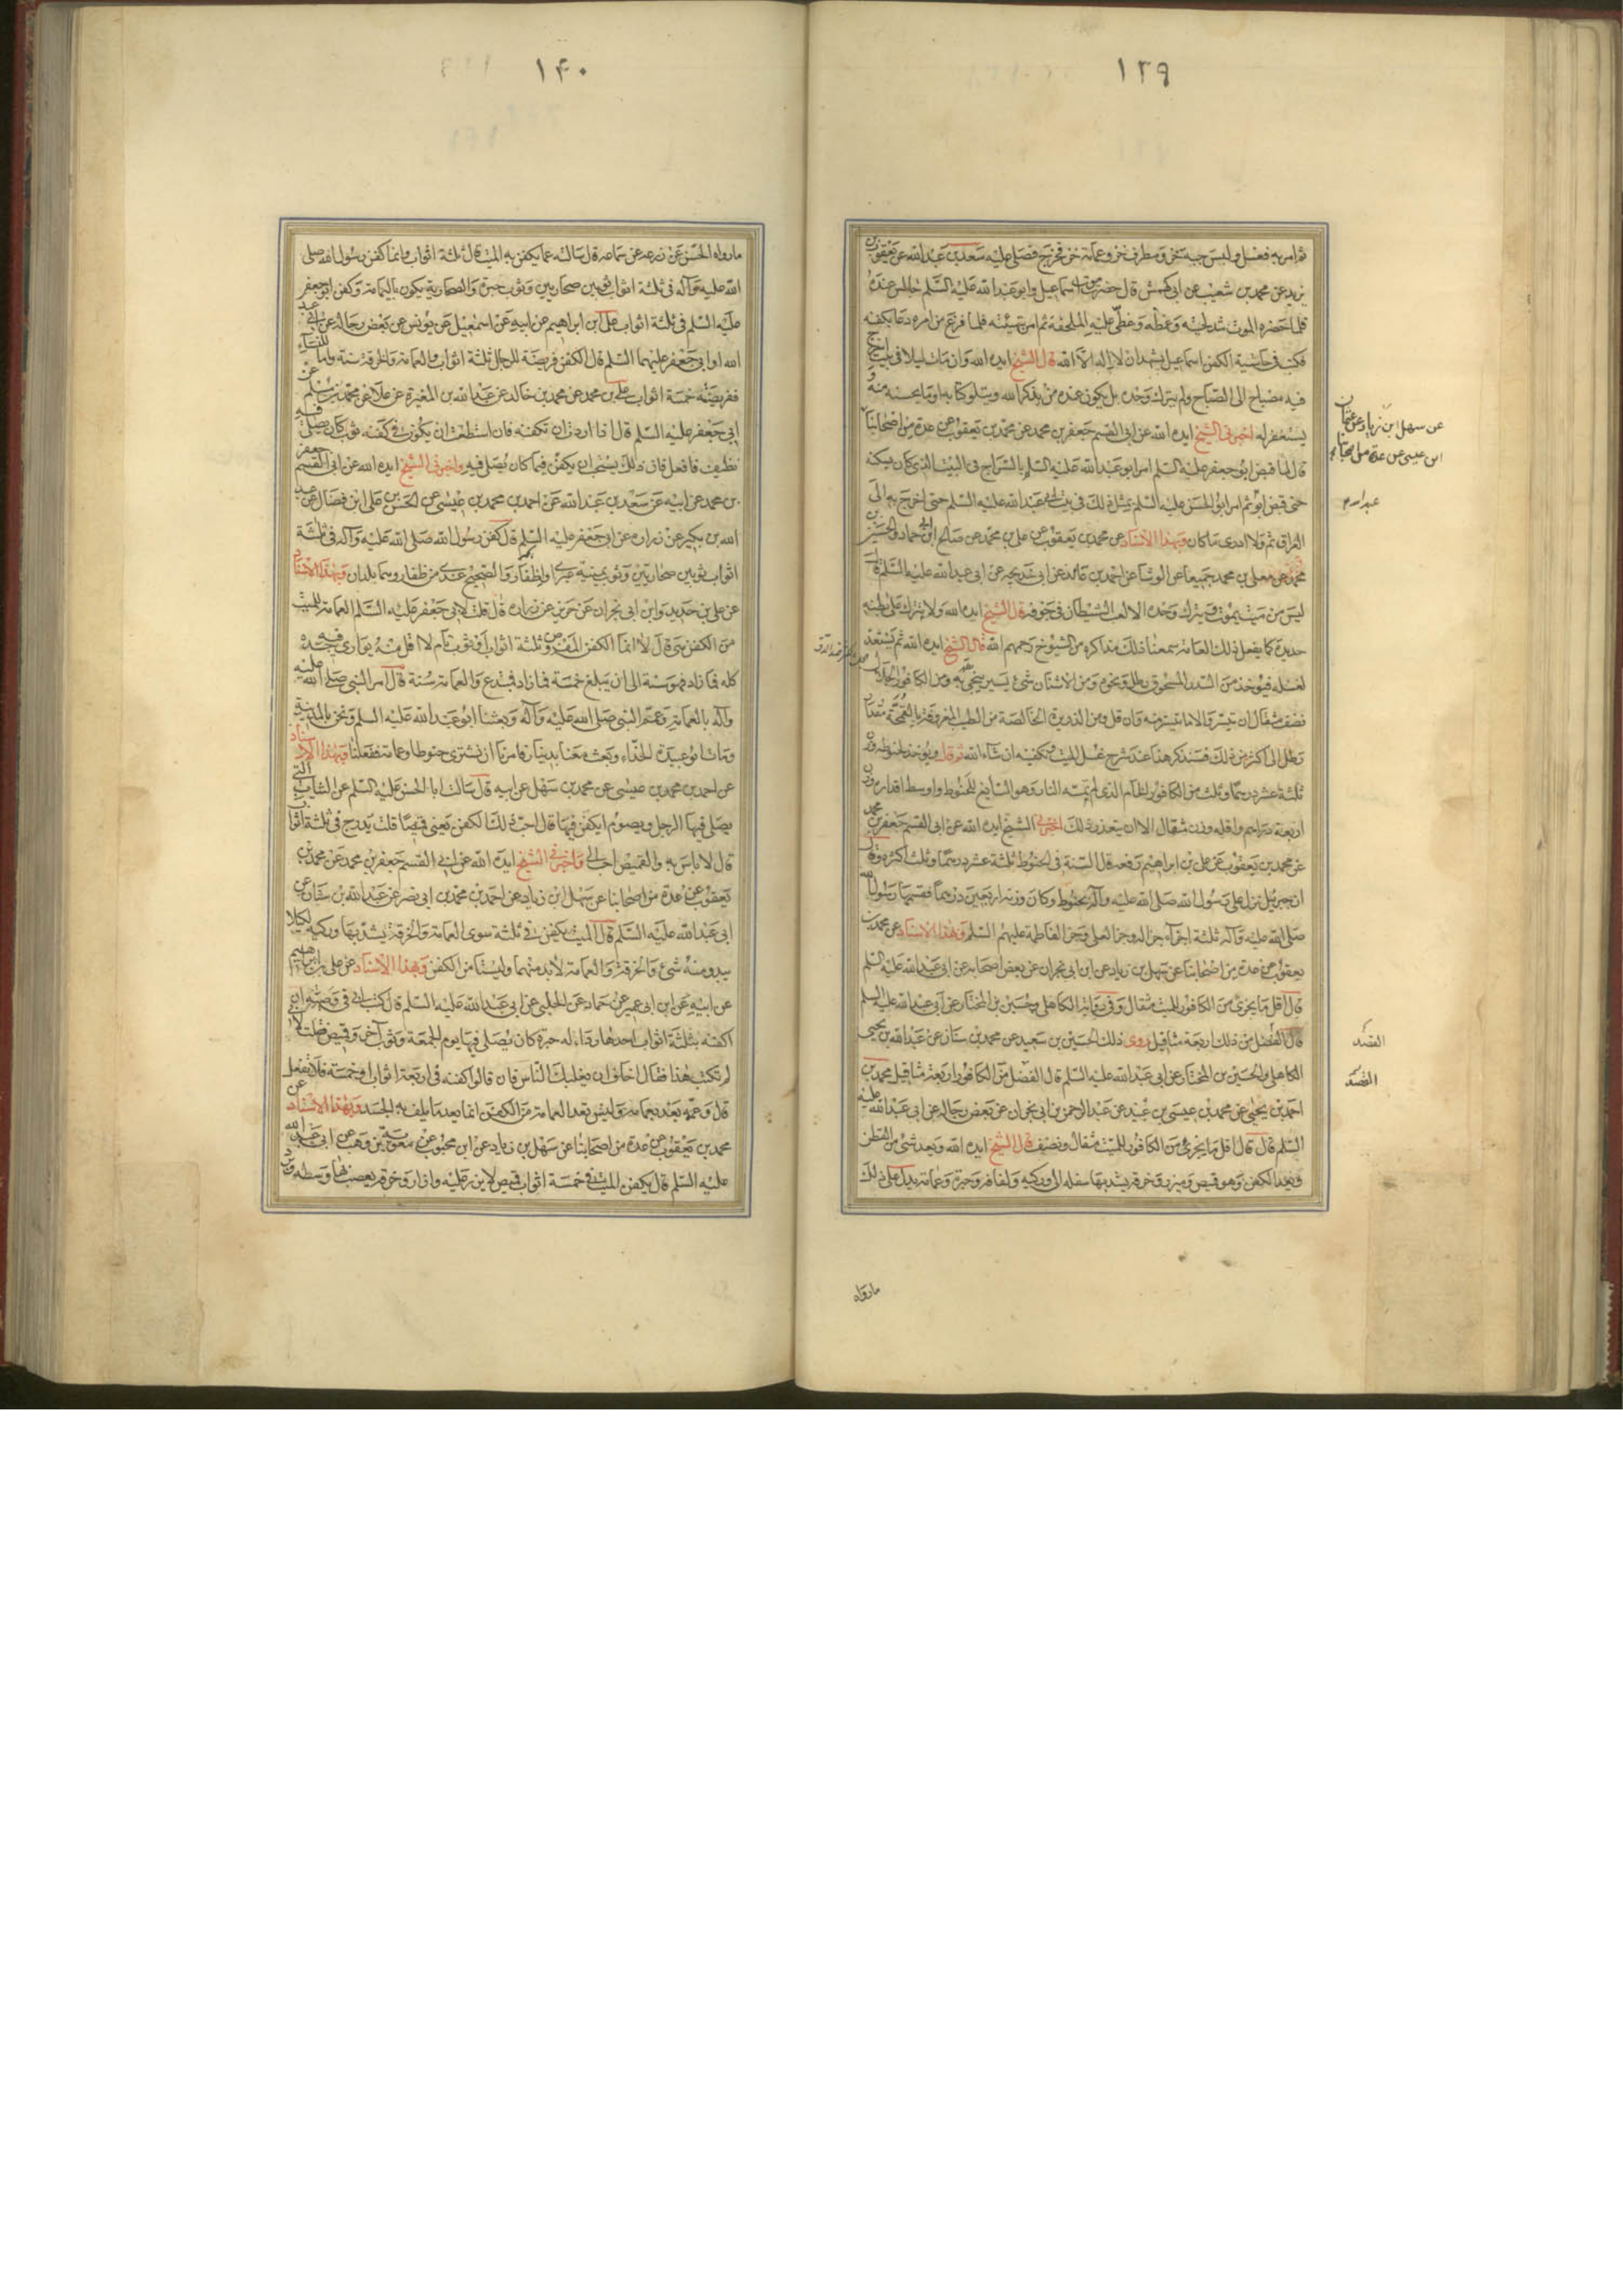 ١٣٩
ثم امر به فغسل ولبس جبة خز ومطرف خز وعمامة خز فخرج فصلى عليه سعد بن عبد الله عن يعقوب بن
يزيد عن محمد بن شعيب عن ابى كهمش قال حضرت موت اسماعيل وابو عبد الله عليه السلم جالس عنده
فلما حضره الموت شد لحيته وغمضه وغطى عليه الملحفة ثم امر بتهيئته فلما فرغ من امره دعا بكفنه
فكتب فى حاشية الكفن اسماعيل يشهد ان لا اله الا الله قال الشيخ ايده الله وان مات ليلا فى بيت اسرج
فيه مصباح الى الصباح ولم يترك وحده بل يكون عنده من يذكر الله ويتلو كتابه او ما يحسنه منه و
يستغفر له اخبرنى الشيخ ايده الله عن ابى القسم جعفر بن محمد عن محمد بن يعقوب عن عدة من اصحابنا
عن سهل بن زياد عن عثمان
ابن عيسى عن عدة من اصحابنا
قال لما قبض ابو جعفر عليه السلم امر ابو عبد الله عليه السلم بالسراج فى البيت الذى كان يسكنه
حتى قبض ابو ثم امر ابو الحسن عليه السلم بمثل ذلك فى بيت ابى عبد الله عليه السلم حتى اخرج به الى
العراق ثم ولا ادرى ما كان وبهذا الاسناد عن محمد بن يعقوب عن على بن محمد عن صالح بن ابى حماد والحسين بن
محمد عن معلى بن محمد جميعا عن الوشا عن احمد بن عائذ عن ابى خديجه عن ابى عبد الله عليه السلم قال
ليس من ميت يموت ويترك وحده الا لعب الشيطان فى جوفه قال الشيخ ايده الله ولا يترك على بطنه
حديدة كما يفعل ذلك العامة سمعنا ذلك مذاكرة من الشيوخ رحمهم الله قال الشيخ ايده الله ثم يستعد
لغسله فيؤخذ من السدر المسحوق رطل ونحوه ومن الاشنان شئ يسير ينجى به ومن الكافور الجلال
نصف مثقال ان تيسر والا ما تيسر منه وان قل ومن الذريرة الخالصة من الطيب المعروفة بالقمحة مقدار
رطل الى اكثر من ذلك فسنذكر هذا عند شرح غسل الميت وتكفينه ان شاء الله ثم قال ويؤخذ لحنوطه وزن
ثلثة عشر درهما وثلث من الكافور الخام الذى لم تمسه النار وهو السايغ للحنوط واوسط اقداره وزن
اربعة دراهم واقله وزن مثقال الا ان يتعذر ذلك اخبرنى الشيخ ايده الله عن ابى القسم جعفر بن محمد
عن محمد بن يعقوب عن على بن ابراهيم رفعه قال السنة فى الحنوط ثلثة عشر درهما وثلث اكثره وقال
ان جبرئيل نزل على رسول الله صلى الله عليه وآله بحنوط وكان وزنه اربعين درهما فقسمها رسول الله
صلى الله عليه وآله ثلثة اجزآء جزا له وجزا لعلى وجزا لفاطمة عليهم السلم وبهذا الاسناد عن محمد بن
يعقوب عن عدة من اصحابنا عن سهل بن زياد عن ابن ابى نجران عن بعض اصحابه عن ابى عبد الله عليه السلم
قال اقل ما يجزى من الكافور للميت مثقال وفى رواية الكاهلى وحسين بن المختار عن ابى عبد الله عليه السلم
قال القصد من ذلك اربعة مثاقيل روى ذلك الحسين بن سعيد عن محمد بن سنان عن عبد الله بن يحيى
القصد
الكاهلى والحسين بن المختار عن ابى عبد الله عليه السلم قال الفضل من الكافور اربعة مثاقيل محمد بن
القصد
احمد بن يحيى عن محمد بن عيسى بن عبيد عن عبد الرحمن بن ابى نجران عن بعض رجاله عن ابى عبد الله عليه
السلم قال قال اقل ما يجزى من الكافور للميت مثقال ونصف قال الشيخ ايده الله ويعد شئ من القطن
ويعد الكفن وهو قميص وميزر وخرقة يشد بها سفله الى وركيه ولفافة وحبرة وعمامة يدل على ذلك
ما رواه
١٤٠
ما رواه الحسن عن زرعه عن سماعه قال سالته عما يكفن به الميت قال ثلثة اثواب وانما كفن رسول الله صلى
الله عليه وآله فى ثلثة اثواب ثوبين صحاريين وثوب حبرة والصحارية يكون باليمامة وكفن ابو جعفر
عليه السلم فى ثلثة اثواب على بن ابراهيم عن ابيه عن اسمعيل عن يونس عن بعض رجاله عن ابى عبد
الله او ابى جعفر عليهما السلم قال الكفن فريضة للرجال ثلثة اثواب والعمامة والخرقة سنة واما للنساء
ففريضته خمسة اثواب على بن محمد عن محمد بن خالد عن عبد الله بن المغيرة عن علا عن محمد بن مسلم عن
ابى جعفر عليه السلم قال اذا اردت ان تكفنه فان استطعت ان يكون فى كفنه ثوب كان يصلى فيه
نظيف فافعل فان ذلك يستحب ان يكفن فيما كان يصلى فيه واخبرنى الشيخ ايده الله عن ابى القسم جعفر
بن محمد عن ابيه عن سعد بن عبد الله عن احمد بن محمد بن عيسى عن الحسن بن على ابن فضال عن عبد
الله بن بكير عن زرارة عن ابى جعفر عليه السلم قال كفن رسول الله صلى الله عليه وآله فى ثلثة
اثواب ثوبين صحاريين وثوب يمنية عبرى او اظفار والصحيح عندى من ظفار وهما بلدان وبهذا الاسناد
عن على بن حديد وابن ابى نجران عن حريز عن زرارة قال قلت لابى جعفر عليه السلم العمامة للميت
من الكفن هى قال لا انما الكفن المفروض ثلثة اثواب او ثوب تام لا اقل منه يوارى فيه جسده
كله فما زاد فهو سنة الى ان يبلغ خمسة فما زاد فمبتدع والعمامة سنة قال امر النبى صلى الله عليه
وآله بالعمامة وعمم النبى صلى الله عليه وآله وبعثنا ابو عبد الله عليه السلم ونحن بالمدينة
ومات ابو عبيدة الحذاء وبعث معنا بدينار فامرنا ان نشترى حنوطا وعمامة ففعلنا وبهذا الاسناد
عن احمد بن محمد بن عيسى عن محمد بن سهل عن ابيه قال سالت ابا الحسن عليه السلم عن الثياب التى
يصلى فيها الرجل ويصوم ايكفن فيها قال احب ذلك الكفن يعنى قميصا قلت يدرج فى ثلثة اثواب
قال لا باس به والقميص احب الى واخبرنى الشيخ ايده الله عن ابى القسم جعفر بن محمد عن محمد بن
يعقوب عن عدة من اصحابنا عن سهل ابن زياد عن احمد بن محمد بن ابى نصر عن عبد الله بن سنان عن
ابى عبد الله عليه السلم قال الميت يكفن فى ثلثة سوى العمامة والخرقة يشد بها وركيه لكيلا
يبدو منه شئ والخرقة والعمامة لا بد منهما وليستا من الكفن وبهذا الاسناد عن على بن ابراهيم
عن ابيه عن ابن ابى عمير عن حماد عن الحلبى عن ابى عبد الله عليه السلم قال كتب ابى فى وصيته ان
اكفنه بثلثة اثواب احدها رداء له حبرة كان يصلى فيها يوم الجمعة وثوب آخر وقميص فقلت لابى
لم تكتب هذا فقال اخاف ان يغلبك الناس فان قالوا كفنه فى اربعة اثواب او خمسة فلا تفعل
قال وعممه بعد بعمامة وليس تعد العمامة من الكفن انما يعد ما يلف به الجسد وبهذا الاسناد عن
محمد بن يعقوب عن عدة من اصحابنا عن سهل بن زياد عن ابن محبوب عن معوية بن وهب عن ابى عبد الله
عليه السلم قال يكفن الميت فى خمسة اثواب قميص لا يزر عليه وازار وخرقة يعصب بها وسطه وبرد